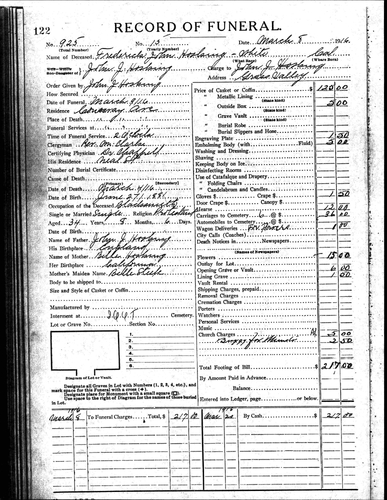 122 RECORD OF FUNERAL.
No. 925 No. 15 Date March 8 1916
(Total Number) (Yearly Number)
Name of Deceased Frederick John Hosking - White Cal.
(What Race) (Where Born)
John J. Hosking Charge to John J. Hosking
Order Given by John J. Hosking Address Grass Valley
Date of Funeral March 9/16
Residence
Place of Death
Funeral Services at
Time of Funeral Service 2 o'clock
Clergyman Rev. Wm
Certifying Physician Dr.
His Residence
Number of Burial Certificate
Cause of Death
(Primary) (Secondary)
Date of Death March 7/16
Date of Birth June 1881
Occupation of the Deceased
Single or Married Single Religion
Age 34 Years 8 Months Days
Name of Father John J. Hosking
His Birthplace England
Name of Mother Belle Hosking
Her Birthplace California
Mother's Maiden Name Belle
Body to be shipped to
Size and Style of Casket or Coffin
Manufactured by
Interment at I.O.O.F. Cemetery
Lot or Grave No. Section No.
1
2
3
4
5
Diagram of Lot or Vault
Designate all Graves in Lot with Numbers (1, 2, 3, 4, etc.), and
mark space for this Funeral with a cross (+).
Designate place for Monument with a small square
Use space to right of Diagram for the names of those buried
in Lot.
Price of Casket or Coffin 125 00
" Metallic Lining
(State kind)
" Outside Box 5 00
(State kind)
" Grave Vault
(State kind)
" Burial Robe
(State kind)
" Burial Slippers and Hose
Engraving Plate 1 50
Embalming Body (with Fluid)
Washing and Dressing
Shaving
Keeping Body on Ice
Disinfecting Rooms
Use of Catafalque and Drapery
" Folding Chairs
" Candelabrum and Candles
Gloves $ Crape $ 1 50
Door Crape $ Canopy $
Hearse 12 00
Carriages to Cemetery 6 @ $ 36 00
Automobiles to Cemetery @ $
Wagon Deliveries 1 00
City Calls (Coaches)
Death Notices in Newspapers
(Names of Newspapers)
Flowers 15 00
Outlay for Lot
Opening Grave or Vault 6 00
Lining Grave 1 50
Vault Rental
Shipping Charges, prepaid
Removal Charges
Cremation Charges
Porters
Watchers
Personal Services
Music
Church Charges 5 00
Buggy for Minister 2 50
Total Footing of Bill 217 00
By Amount Paid in Advance
Balance
Entered into Ledger, page or below.
March 8 To Funeral Charges Total, $ 217 00 By Cash $ 217 00